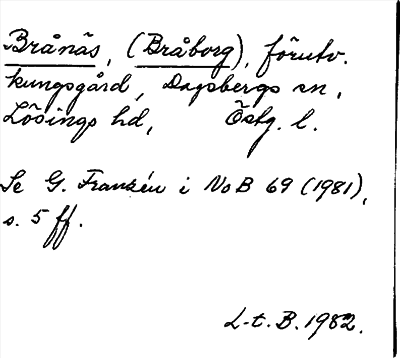 Brånäs, (Bråborg), förutv.
kungsgård, Dagsbergs sn,
Lösings hd, Östg. l.
Se G. Franzén i NoB 69 (1981),
s. 5 ff.
L-t. B. 1982.